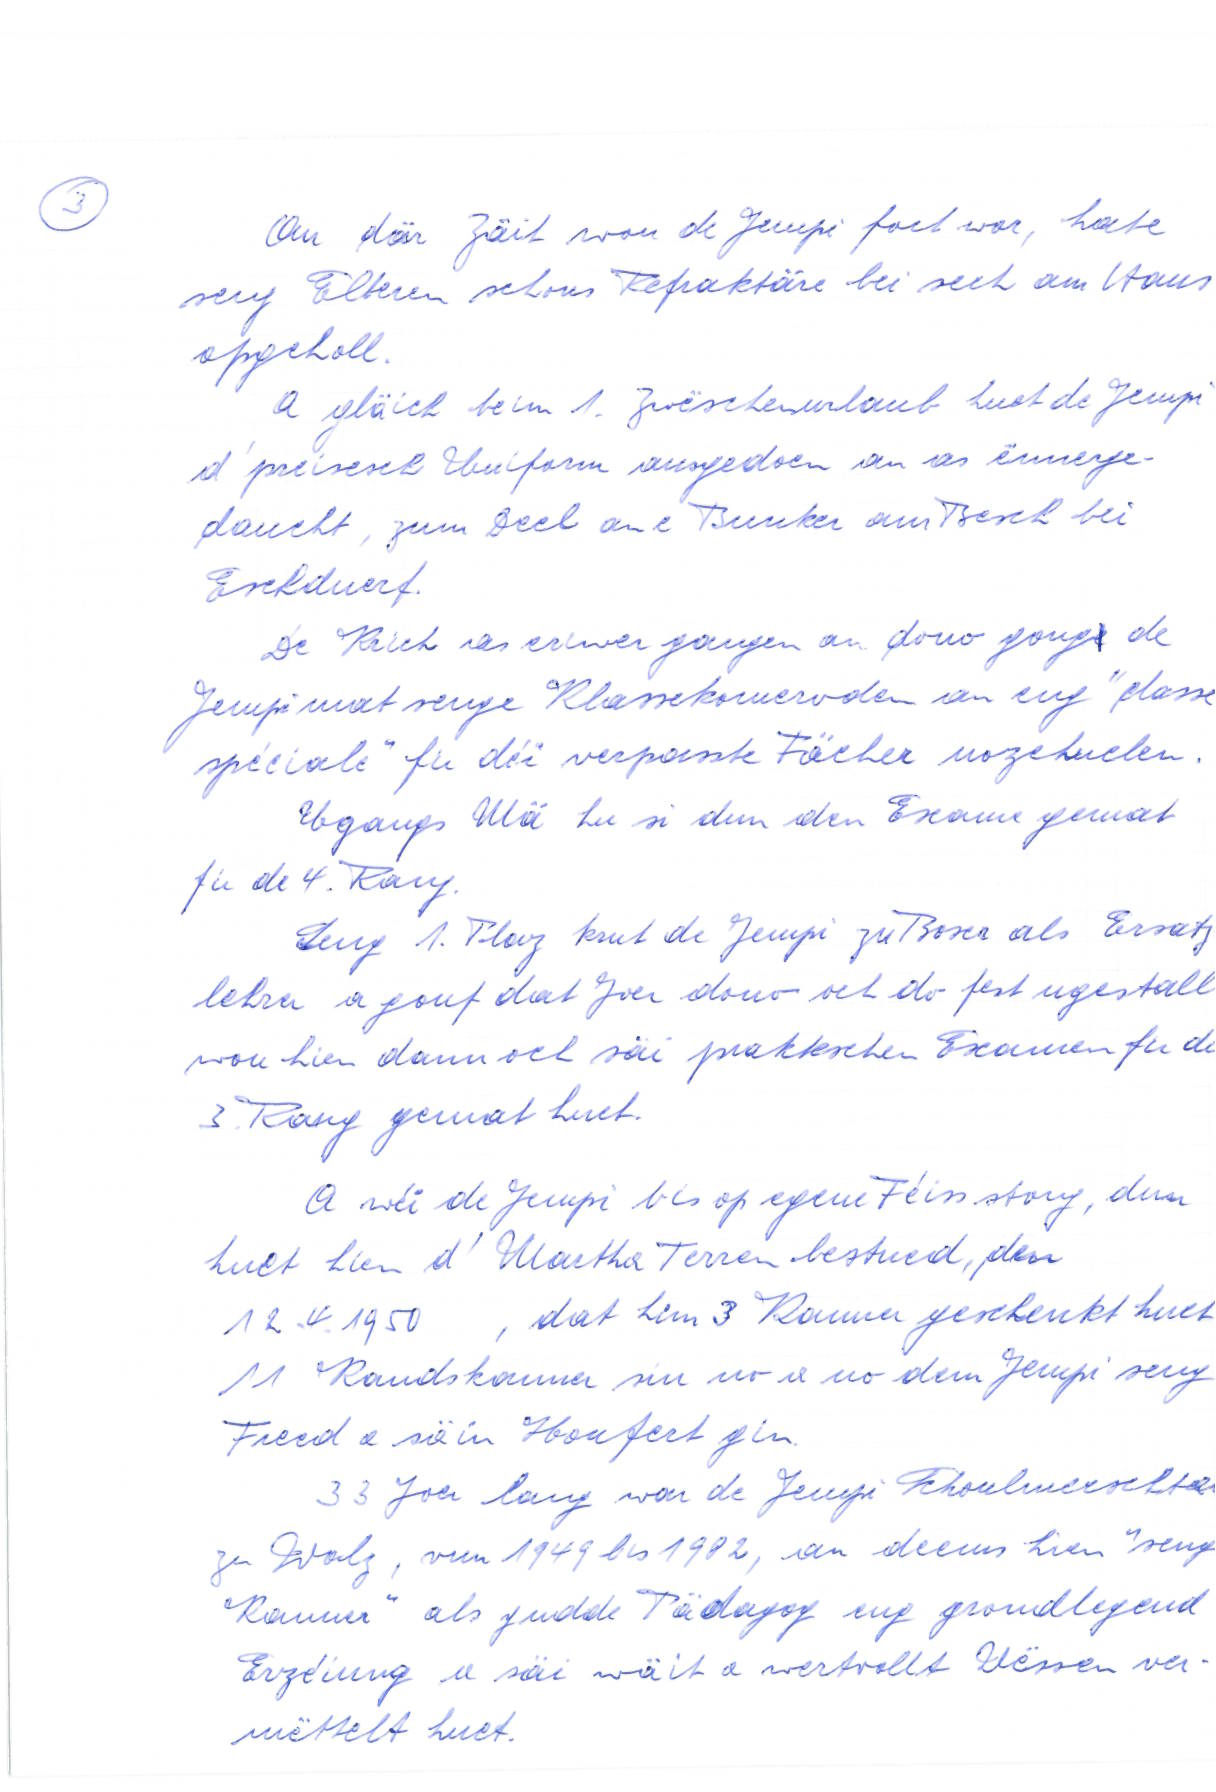 3
An där Zäit wou de Jempi fort wor, hate
seng Elteren schons Refraktäre bei sech am Haus
opgeholl.
A gläich beim 1. Zwëschenurlaub huet de Jempi
d'preisesch Uniform ausgedoen an as ënnerge-
daucht, zum Deel an e Bunker am Bësch bei
Eschduerf.
De Krich as eriwer gangen an dono goung de
Jempi mat senge Klassekomeroden an eng "classe
spéciale" fir déi verpasste Fächer nozehuelen.
Ugangs Mä hu si dun den Exame gemat
fir de 4. Rang.
Seng 1. Plaz krut de Jempi zu Boxer als Ersatz
lehrer a gouf dat Joer dono och do fest ugestall
wou hien dann och säi prakteschen Examen fir de
3. Rang gemat huet.
A wéi de Jempi bis op egene Féiss stong, dun
huet hien d'Martha Terren bestued, den
12.4.1950 , dat him 3 Kanner geschenkt huet
11 Kandskanner sin no a no dem Jempi seng
Freed a säin Houfert gin.
33 Joer lang war de Jempi Schoulmeeschter
zu Walz, vun 1949 bis 1982, an deems hien "seng
Kanner" als gudde Pädagog eng grondlegend
Erzéiung a säi wäit a wertvollt Wëssen ver-
mëttelt huet.